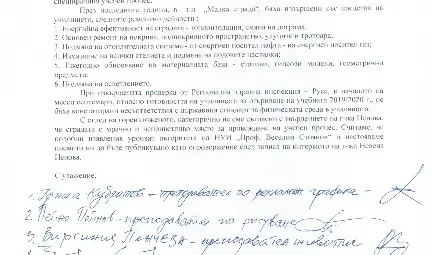 специфичния учебен процес.
През последните години, в т.ч „Малка сграда", бяха извършени със средства на
училището, следните ремонтни дейности :
1. Енергийна ефективност на сградата - топлоизолация, смяна на дограма;
2. Основен ремонт на покрива, подпокривното пространство, улуците, мазета;
3. Подмяна на отоплителната система - от енергиен носител нафта - на енергиен носител газ;
4. Измазване на всички ателиета и подмяна на подовите настилки;
5. Ежегодно обновяване на материалната база - стативи, гипсови модели, геометрични
предмети;
6. Подмяна на осветлението.
При извършената проверка от Регионална здравна инспекция – Русе, в началото на
месец септември, относно готовността на училището за откриване на учебната 2019/2020 г., не
бяха констатирани несъответствия с държавния стандарт за физическата среда в училището.
С оглед на гореизложеното, категорично не сме съгласни с твърдението на г-жа Пенова,
че сградата е мрачно и неприветливо място за провеждане на учебен процес. Считаме, че
подобни изявления уронват авторитета на НУИ „Проф. Веселин Стоянов" и настояваме
писмото ни да бъде публикувано като опровержение след записа на интервюто на г-жа Невена
Пенова.
С уважение,
1. - преподавател по рекламна графика -
2. Пейчо Пейчев - преподавател по рисуване
3. Виргиния - преподавател живопис